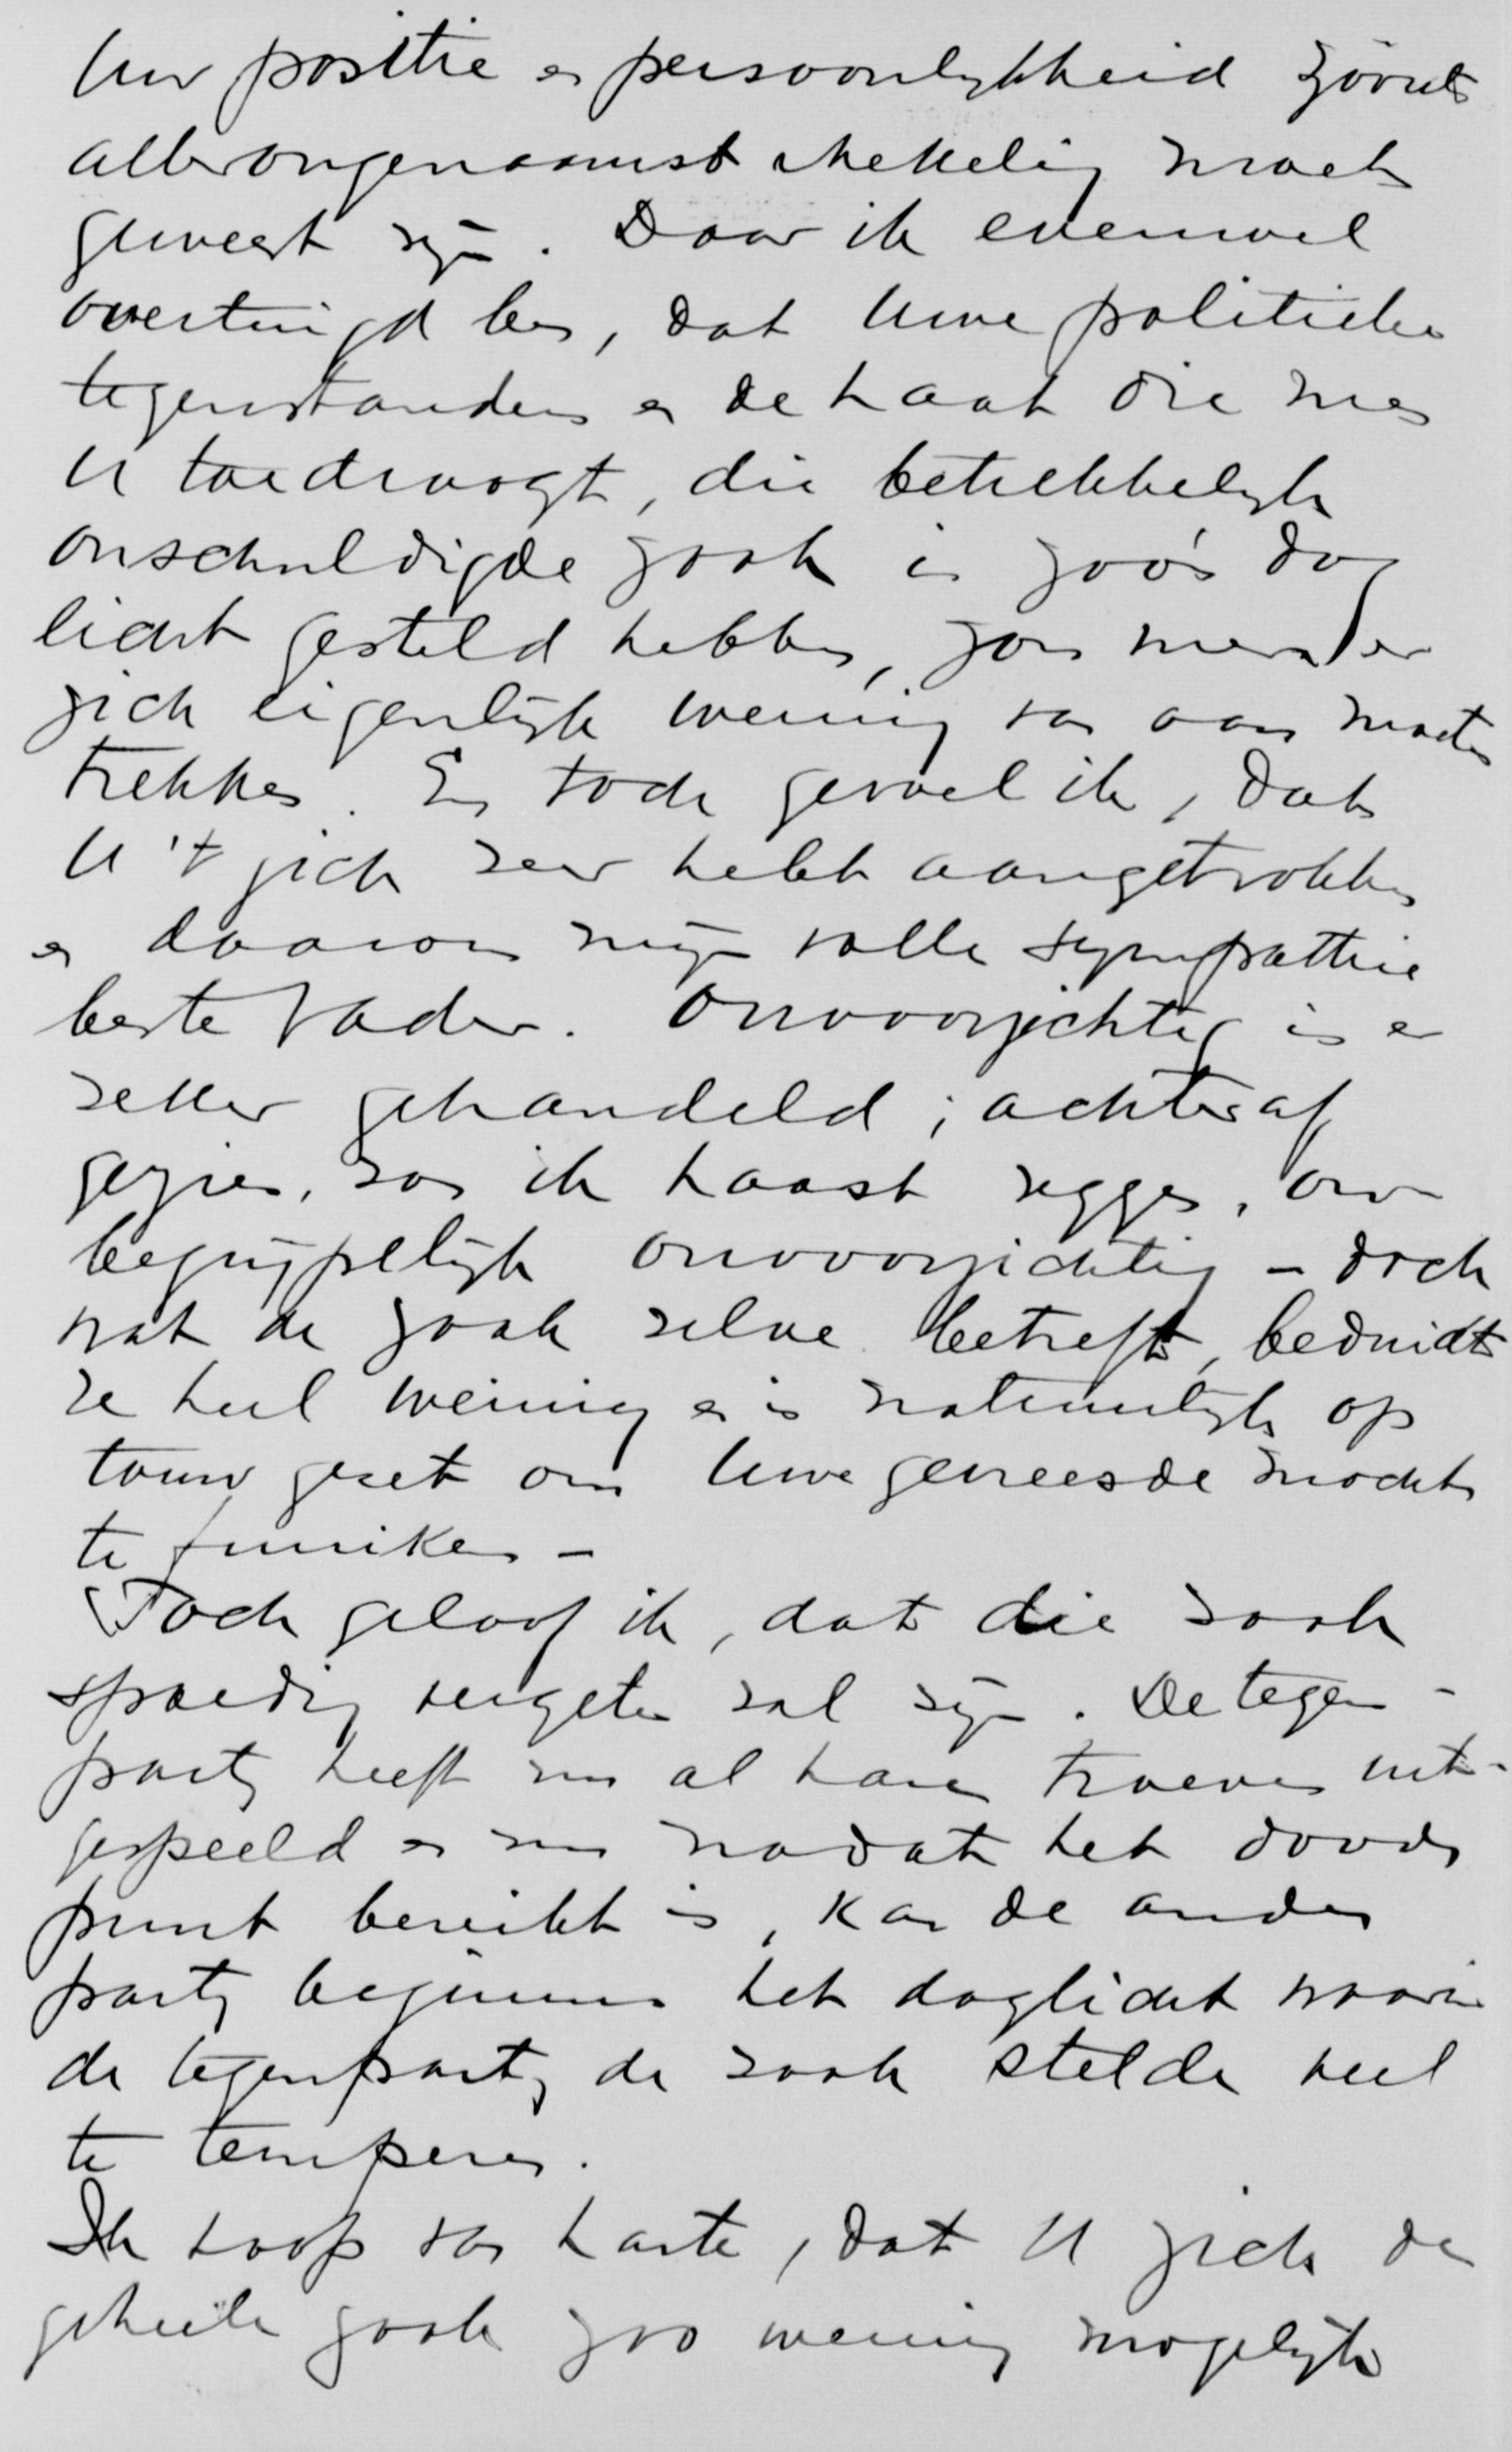 Uw positie en persoonlykheid zooiets
allerongenaamst prikkelig moet
geweest zyn. Daar ik evenwel
overtuigd ben, dat Uwe politieke
tegenstanders en de haat die men
U toedraagt, die betrekkelyk
onschuldigde zaak in zoo'n dag
licht gesteld hebben, zou men er
zich eigenlyk weinig van aan moeten
trekken. En toch gevoel ik, dat
U 't zich zeer hebt aangetrokken
en daarom myn volle sympathie
beste Vader. Onvoorzichtig is er
zeker gehandeld; achteraf
gezien, zou ik haast zeggen, on-
begrypelyk onvoorzichtig – doch
wat de zaak zelve betreft, beduidt
ze heel weinig en is natuurlyk op
touw gezet om Uwe gevreesde macht
te fnuiken –
Toch geloof ik, dat die zaak
spoedig vergeten zal zyn. De tegen-
party heeft nu al haar troeven uit-
gespeeld en nu nadat het doode
punt bereikt is, kan de andere
party beginnen het daglicht waarin
de tegenparty de zaak stelde heel
te temperen.
Ik hoop van harte, dat U zich de
geheele zaak zoo weinig mogelyk